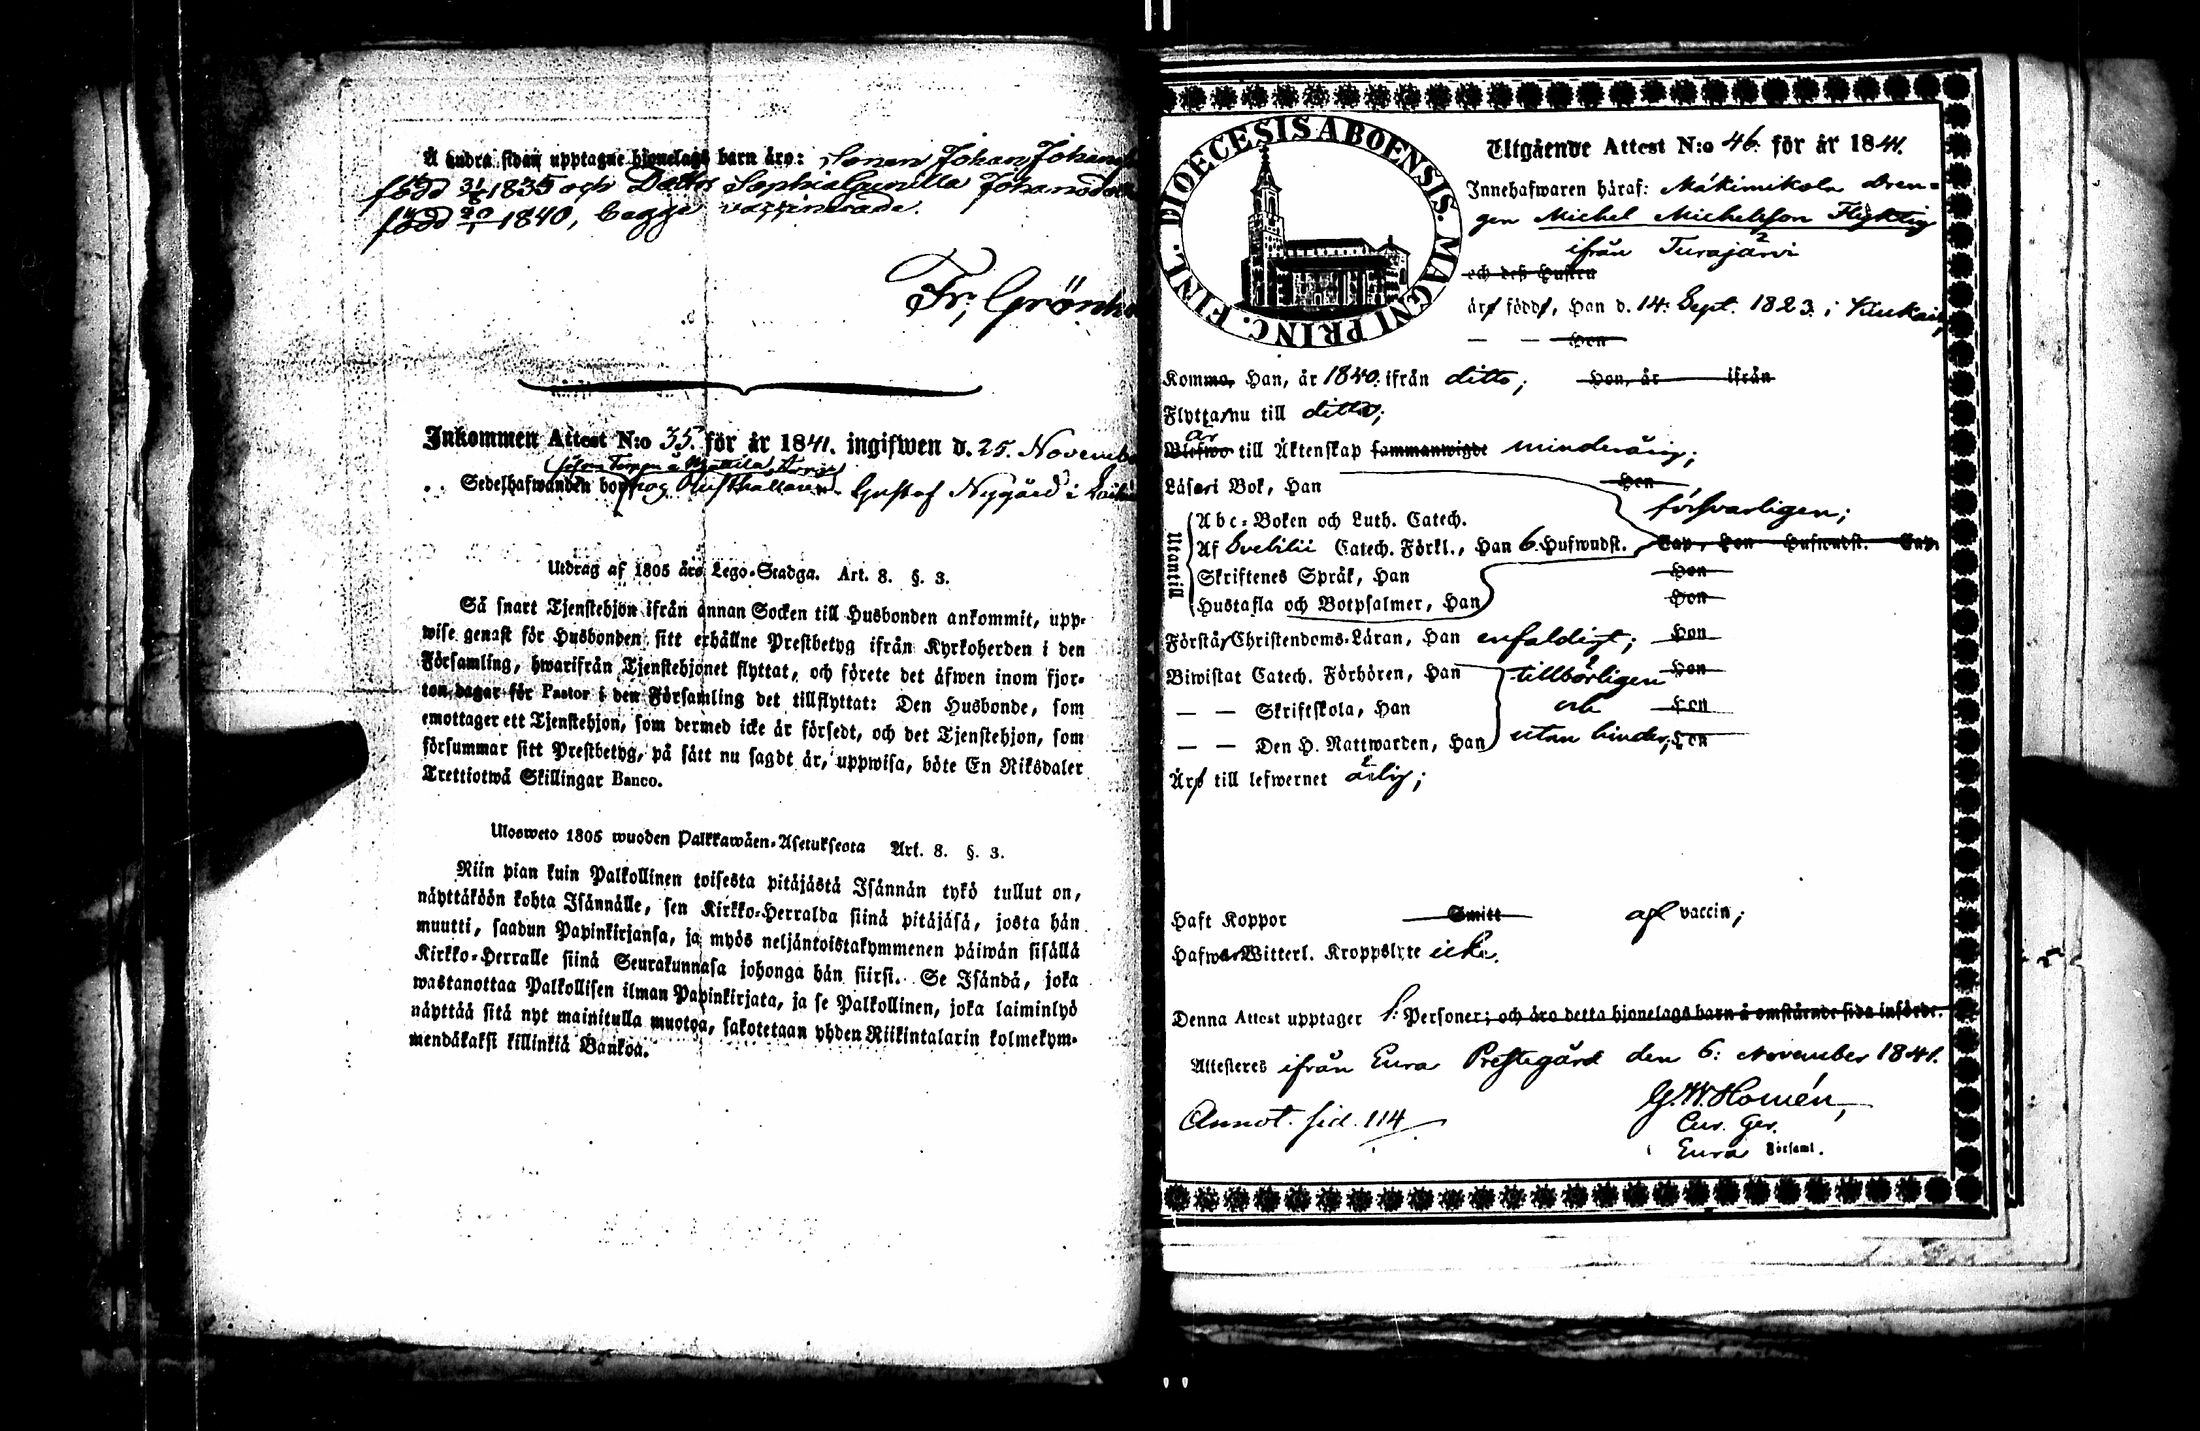 Å andra sidan upptagne hjonelags barn äro: Sonen Johan
född 31/8 1835 och Dottr Sophia Gunilla
född 20/1 1840, begge vaccinerade.
Fr:
Inkommen Attest N:o 35. för år 1841. ingifwen d. 25.
Sedelhafwanden bor Gustaf Nygård i
Utdrag af 1805 års Lego-Stadga. Art. 8. §. 3.
Så snart Tjenstehjon ifrån annan Socken till Husbonden ankommit, upp-
wise genast för Husbonden sitt erhållne Prestbetyg ifrån Kyrkoherden i den
Församling, hwarifrån Tjenstehjonet flyttat, och förete det äfwen inom fjor-
ton dagar för Pastor i den Församling det tillflyttat: Den Husbonde, som
emottager ett Tjenstehjon, som dermed icke är försedt, och det Tjenstehjon, som
försummar sitt Prestbetyg, på sätt nu sagdt är, uppwisa, böte En Riksdaler
Trettiotwå Skillingar Banco.
Ulosweto 1805 wuoden Palkkawäen-Asetuksesta Art. 8. §. 3.
Niin pian kuin Palkollinen toisesta pitäjästä Isännän tykö tullut on,
näyttäköön kohta Isännälle, sen Kirkko-Herralda siinä pitäjäsä, josta hän
muutti, saadun Papinkirjansa, ja myös neljäntoistakymmenen päiwän sisällä
Kirkko-Herralle siinä Seurakunnasa johonga hän siirsi. Se Isändä, joka
wastanottaa Palkollisen ilman Papinkirjata, ja se Palkollinen, joka laiminlyö
näyttää sitä nyt mainitulla muotoa, sakotetaan yhden Riikintalarin kolmekym-
mendäkaksi killinkiä Bankoa.
DIOECESIS ABOENSIS. MAGNI PRINC. FINL.
Utgående Attest N:o 46. för år 1841.
Innehafwaren häraf: Mäkimikola Dren-
gen Michel Michelsson Flyktig
ifrån Turajärvi
och deß Hustru
äro födde, Han d. 14: Sept. 1823. i
— — Hon
Komme, Han, år 1840. ifrån ditto; Hon, år ifrån
Flytta nu till ditto;
är
Blefwo till Äktenskap sammanwigde minderårig;
Läser i Bok, Han Hon
försvarligen;
Utantill
Abc-Boken och Luth. Catech.
Af Svebilii Catech. Förkl., Han 6. Hufwudst. Cap, Hon Hufwudst. Cap.
Skriftenes Språk, Han Hon
Hustafla och Botpsalmer, Han Hon
Förstår Christendoms-Läran, Han enfaldigt; Hon
Biwistat Catech. Förhören, Han tillbörligen Hon
— — Skriftskola, Han och Hon
— — Den H. Nattwarden, Han utan hinder; Hon
Äro till lefwernet ärlig;
Haft Koppor Smitt af vaccin;
Hafwa Witterl. Kroppslyte icke.
Denna Attest upptager 1: Personer; och äro detta hjonelags barn å omstående sida införde.
Attesteres ifrån Eura Prestegård den 6: November 1841.
G. W. Homén,
Annot. sid. 114
Cur. Ger.
Eura Församl.